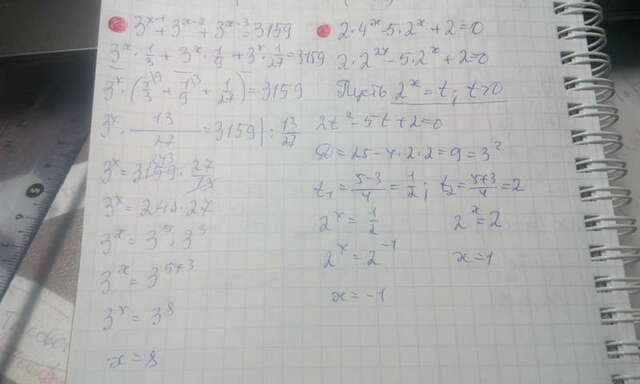 3^(x-1) + 3^(x-2) + 3^(x-3) = 3159
3^x · 1/3 + 3^x · 1/9 + 3^x · 1/27 = 3159
3^x · (1/3 + 1/9 + 1/27) = 3159
3^x · 13/27 = 3159 | : 13/27
3^x = 3159 · 27/13
3^x = 243 · 27
3^x = 3^5 · 3^3
3^x = 3^(5+3)
3^x = 3^8
x = 8
2 · 4^x - 5 · 2^x + 2 = 0
2 · 2^(2x) - 5 · 2^x + 2 = 0
Пусть 2^x = t; t > 0
2t^2 - 5t + 2 = 0
D = 25 - 4 · 2 · 2 = 9 = 3^2
t_1 = (5-3)/4 = 1/2; t_2 = (5+3)/4 = 2
2^x = 1/2 2^x = 2
2^x = 2^(-1) x = 1
x = -1